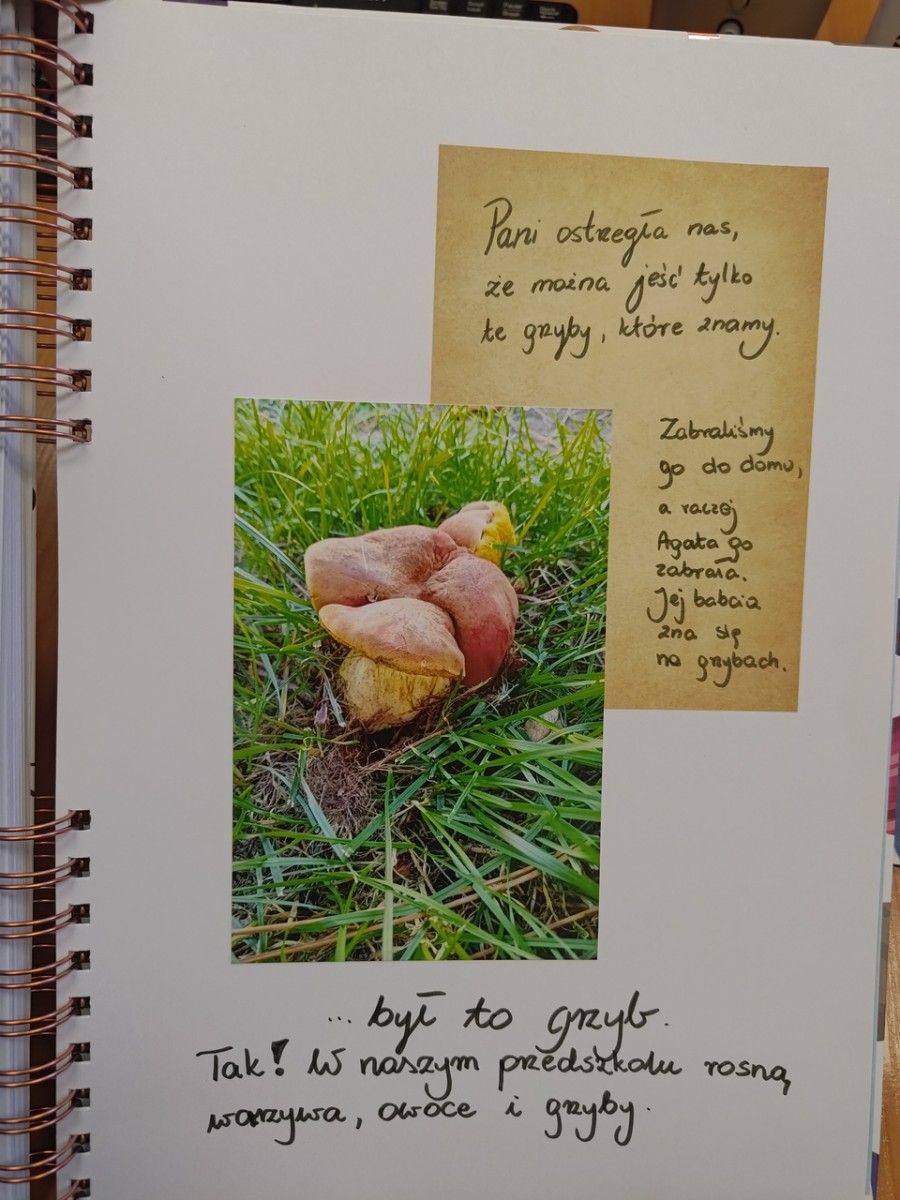 Pani ostrzegła nas,
że można jeść tylko
te grzyby, które znamy.
Zabraliśmy
go do domu,
a raczej
Agata go
zabrała.
Jej babcia
zna się
na grzybach.
... był to grzyb.
Tak! W naszym przedszkolu rosną
warzywa, owoce i grzyby.